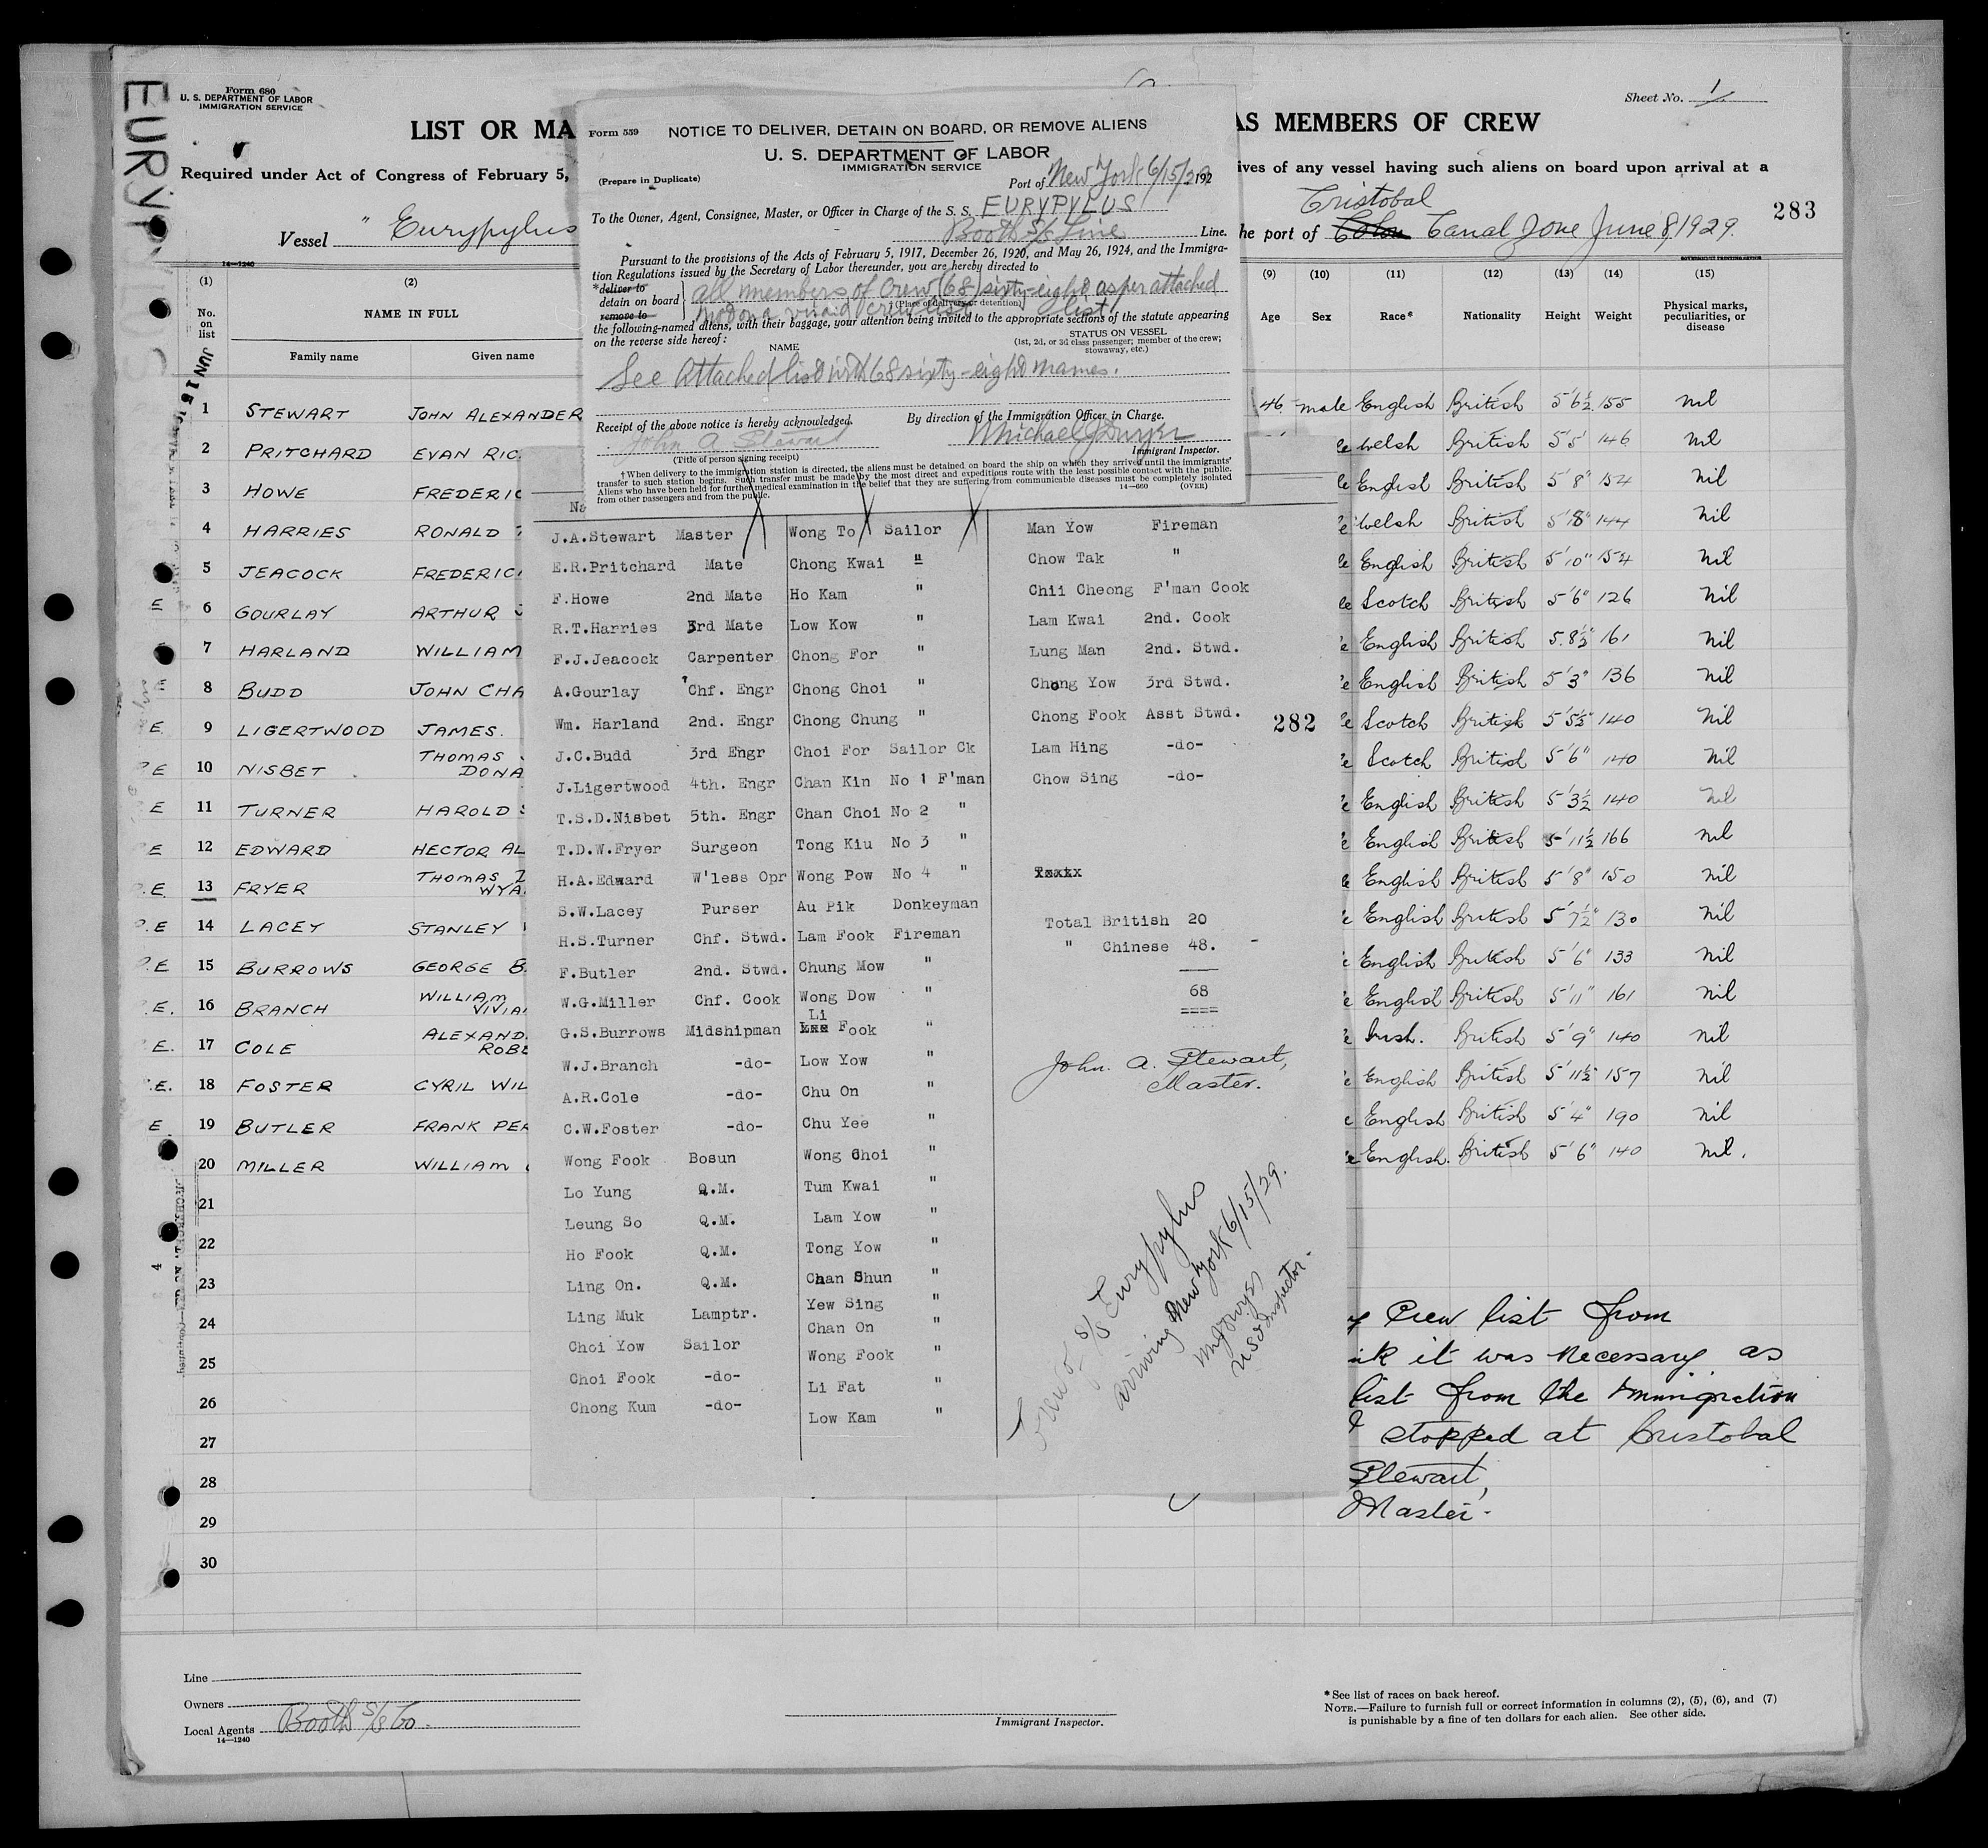 EURYPYLUS
Form 680
U. S. DEPARTMENT OF LABOR
IMMIGRATION SERVICE
Sheet No. 1
LIST OR MA
AS MEMBERS OF CREW
Required under Act of Congress of February 5,
ives of any vessel having such aliens on board upon arrival at a
Vessel " Eurypylus
Cristobal
he port of Colon Canal Zone June 8, 1929.
283
14—1240
Form 559
NOTICE TO DELIVER, DETAIN ON BOARD, OR REMOVE ALIENS
U. S. DEPARTMENT OF LABOR
IMMIGRATION SERVICE
(Prepare in Duplicate)
Port of New York 6/15/29 192
To the Owner, Agent, Consignee, Master, or Officer in Charge of the S. S. EURYPYLUS
Booth S/S Line Line.
Pursuant to the provisions of the Acts of February 5, 1917, December 26, 1920, and May 26, 1924, and the Immigra-
tion Regulations issued by the Secretary of Labor thereunder, you are hereby directed to
*deliver to
detain on board
remove to
all members of crew (68) sixty-eight as per attached
not on a visaid crew list list
(Place of delivery or detention)
the following-named aliens, with their baggage, your attention being invited to the appropriate sections of the statute appearing
on the reverse side hereof:
NAME
STATUS ON VESSEL
(1st, 2d, or 3d class passenger; member of the crew;
stowaway, etc.)
See Attached list with 68 sixty-eight names.
Receipt of the above notice is hereby acknowledged.
By direction of the Immigration Officer in Charge.
John A. Stewart
Michael J Dwyer
(Title of person signing receipt)
Immigrant Inspector.
†When delivery to the immigration station is directed, the aliens must be detained on board the ship on which they arrived until the immigrants'
transfer to such station begins. Such transfer must be made by the most direct and expeditious route with the least possible contact with the public.
Aliens who have been held for further medical examination in the belief that they are suffering from communicable diseases must be completely isolated
from other passengers and from the public.
14—660 (OVER)
(1) (2)
No. on list
NAME IN FULL
Family name Given name
JUN 15
1 STEWART JOHN ALEXANDER
2 PRITCHARD EVAN RIC
3 HOWE FREDERIC
4 HARRIES RONALD T
5 JEACOCK FREDERIC
E 6 GOURLAY ARTHUR J
7 HARLAND WILLIAM
E 8 BUDD JOHN CHA
E 9 LIGERTWOOD JAMES.
P.E 10 NISBET THOMAS S DONA
E 11 TURNER HAROLD S
P.E 12 EDWARD HECTOR AL
P.E. 13 FRYER THOMAS D WYA
P.E 14 LACEY STANLEY W
P.E 15 BURROWS GEORGE B.
.E. 16 BRANCH WILLIAM VIVIAN
E. 17 COLE ALEXAND. ROBE
.E. 18 FOSTER CYRIL WIL
E. 19 BUTLER FRANK PER
20 MILLER WILLIAM G
21
22
23
24
25
26
27
28
29
30
J.A.Stewart Master
E.R.Pritchard Mate
F.Howe 2nd Mate
R.T.Harries 3rd Mate
F.J.Jeacock Carpenter
A.Gourlay Chf. Engr
Wm. Harland 2nd. Engr
J.C.Budd 3rd Engr
J.Ligertwood 4th. Engr
T.S.D.Nisbet 5th. Engr
T.D.W.Fryer Surgeon
H.A.Edward W'less Opr
S.W.Lacey Purser
H.S.Turner Chf. Stwd.
F.Butler 2nd. Stwd.
W.G.Miller Chf. Cook
G.S.Burrows Midshipman
W.J.Branch -do-
A.R.Cole -do-
C.W.Foster -do-
Wong Fook Bosun
Lo Yung Q.M.
Leung So Q.M.
Ho Fook Q.M.
Ling On. Q.M.
Ling Muk Lamptr.
Choi Yow Sailor
Choi Fook -do-
Chong Kum -do-
Wong To Sailor
Chong Kwai "
Ho Kam "
Low Kow "
Chong For "
Chong Choi "
Chong Chung "
Choi For Sailor Ck
Chan Kin No 1 F'man
Chan Choi No 2 "
Tong Kiu No 3 "
Wong Pow No 4 "
Au Pik Donkeyman
Lam Fook Fireman
Chung Mow "
Wong Dow "
Li
Lee Fook "
Low Yow "
Chu On "
Chu Yee "
Wong Choi "
Tum Kwai "
Lam Yow "
Tong Yow "
Chan Shun "
Yew Sing "
Chan On "
Wong Fook "
Li Fat "
Low Kam "
Man Yow Fireman
Chow Tak "
Chii Cheong F'man Cook
Lam Kwai 2nd. Cook
Lung Man 2nd. Stwd.
Chong Yow 3rd Stwd.
Chong Fook Asst Stwd.
Lam Hing -do-
Chow Sing -do-
282
Total British 20
" Chinese 48.
68
John. A. Stewart,
Master.
Crew of S/S Eurypylus
arriving New York 6/15/29.
M J Dwyer
U S Inspector.
(9) (10) (11) (12) (13) (14) (15)
Age Sex Race* Nationality Height Weight Physical marks, peculiarities, or disease
46 male English British 5'6½ 155 nil
le Welsh British 5'5" 146 nil
le English British 5'8" 154 nil
le Welsh British 5'8" 144 nil
le English British 5'10" 154 nil
le Scotch British 5'6" 126 nil
e English British 5.8½" 161 nil
e English British 5'3" 136 nil
e Scotch British 5'5½" 140 nil
e Scotch British 5'6" 140 nil
e English British 5'3½ 140 nil
e English British 5'11½ 166 nil
e English British 5'8" 150 nil
e English British 5'7½" 130 nil
e English British 5'6" 133 nil
e English British 5'11" 161 nil
e Irish. British 5'9" 140 nil
e English British 5'11½" 157 nil
e English British 5'4" 190 nil
e English. British 5'6" 140 nil.
Crew list from
nk it was necessary as
list from the Immigration
stopped at Cristobal
Stewart,
Master.
Line
Owners
Local Agents Booth S/S Co.
14—1240
Immigrant Inspector.
*See list of races on back hereof.
NOTE.—Failure to furnish full or correct information in columns (2), (5), (6), and (7)
is punishable by a fine of ten dollars for each alien. See other side.